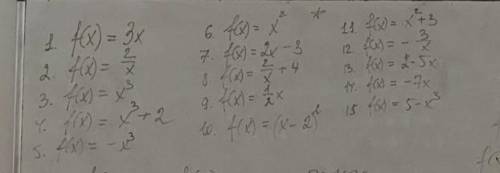 1. f(x) = 3x
2. f(x) = 2/x
3. f(x) = x³
4. f(x) = x³ + 2
5. f(x) = -x³
6. f(x) = x²
7. f(x) = 2x - 3
8 f(x) = 2/x + 4
9. f(x) = 1/2 x
10. f(x) = (x - 2)²
11. f(x) = x² + 3
12. f(x) = - 3/x
13. f(x) = 2 - 5x
14. f(x) = -7x
15. f(x) = 5 - x³